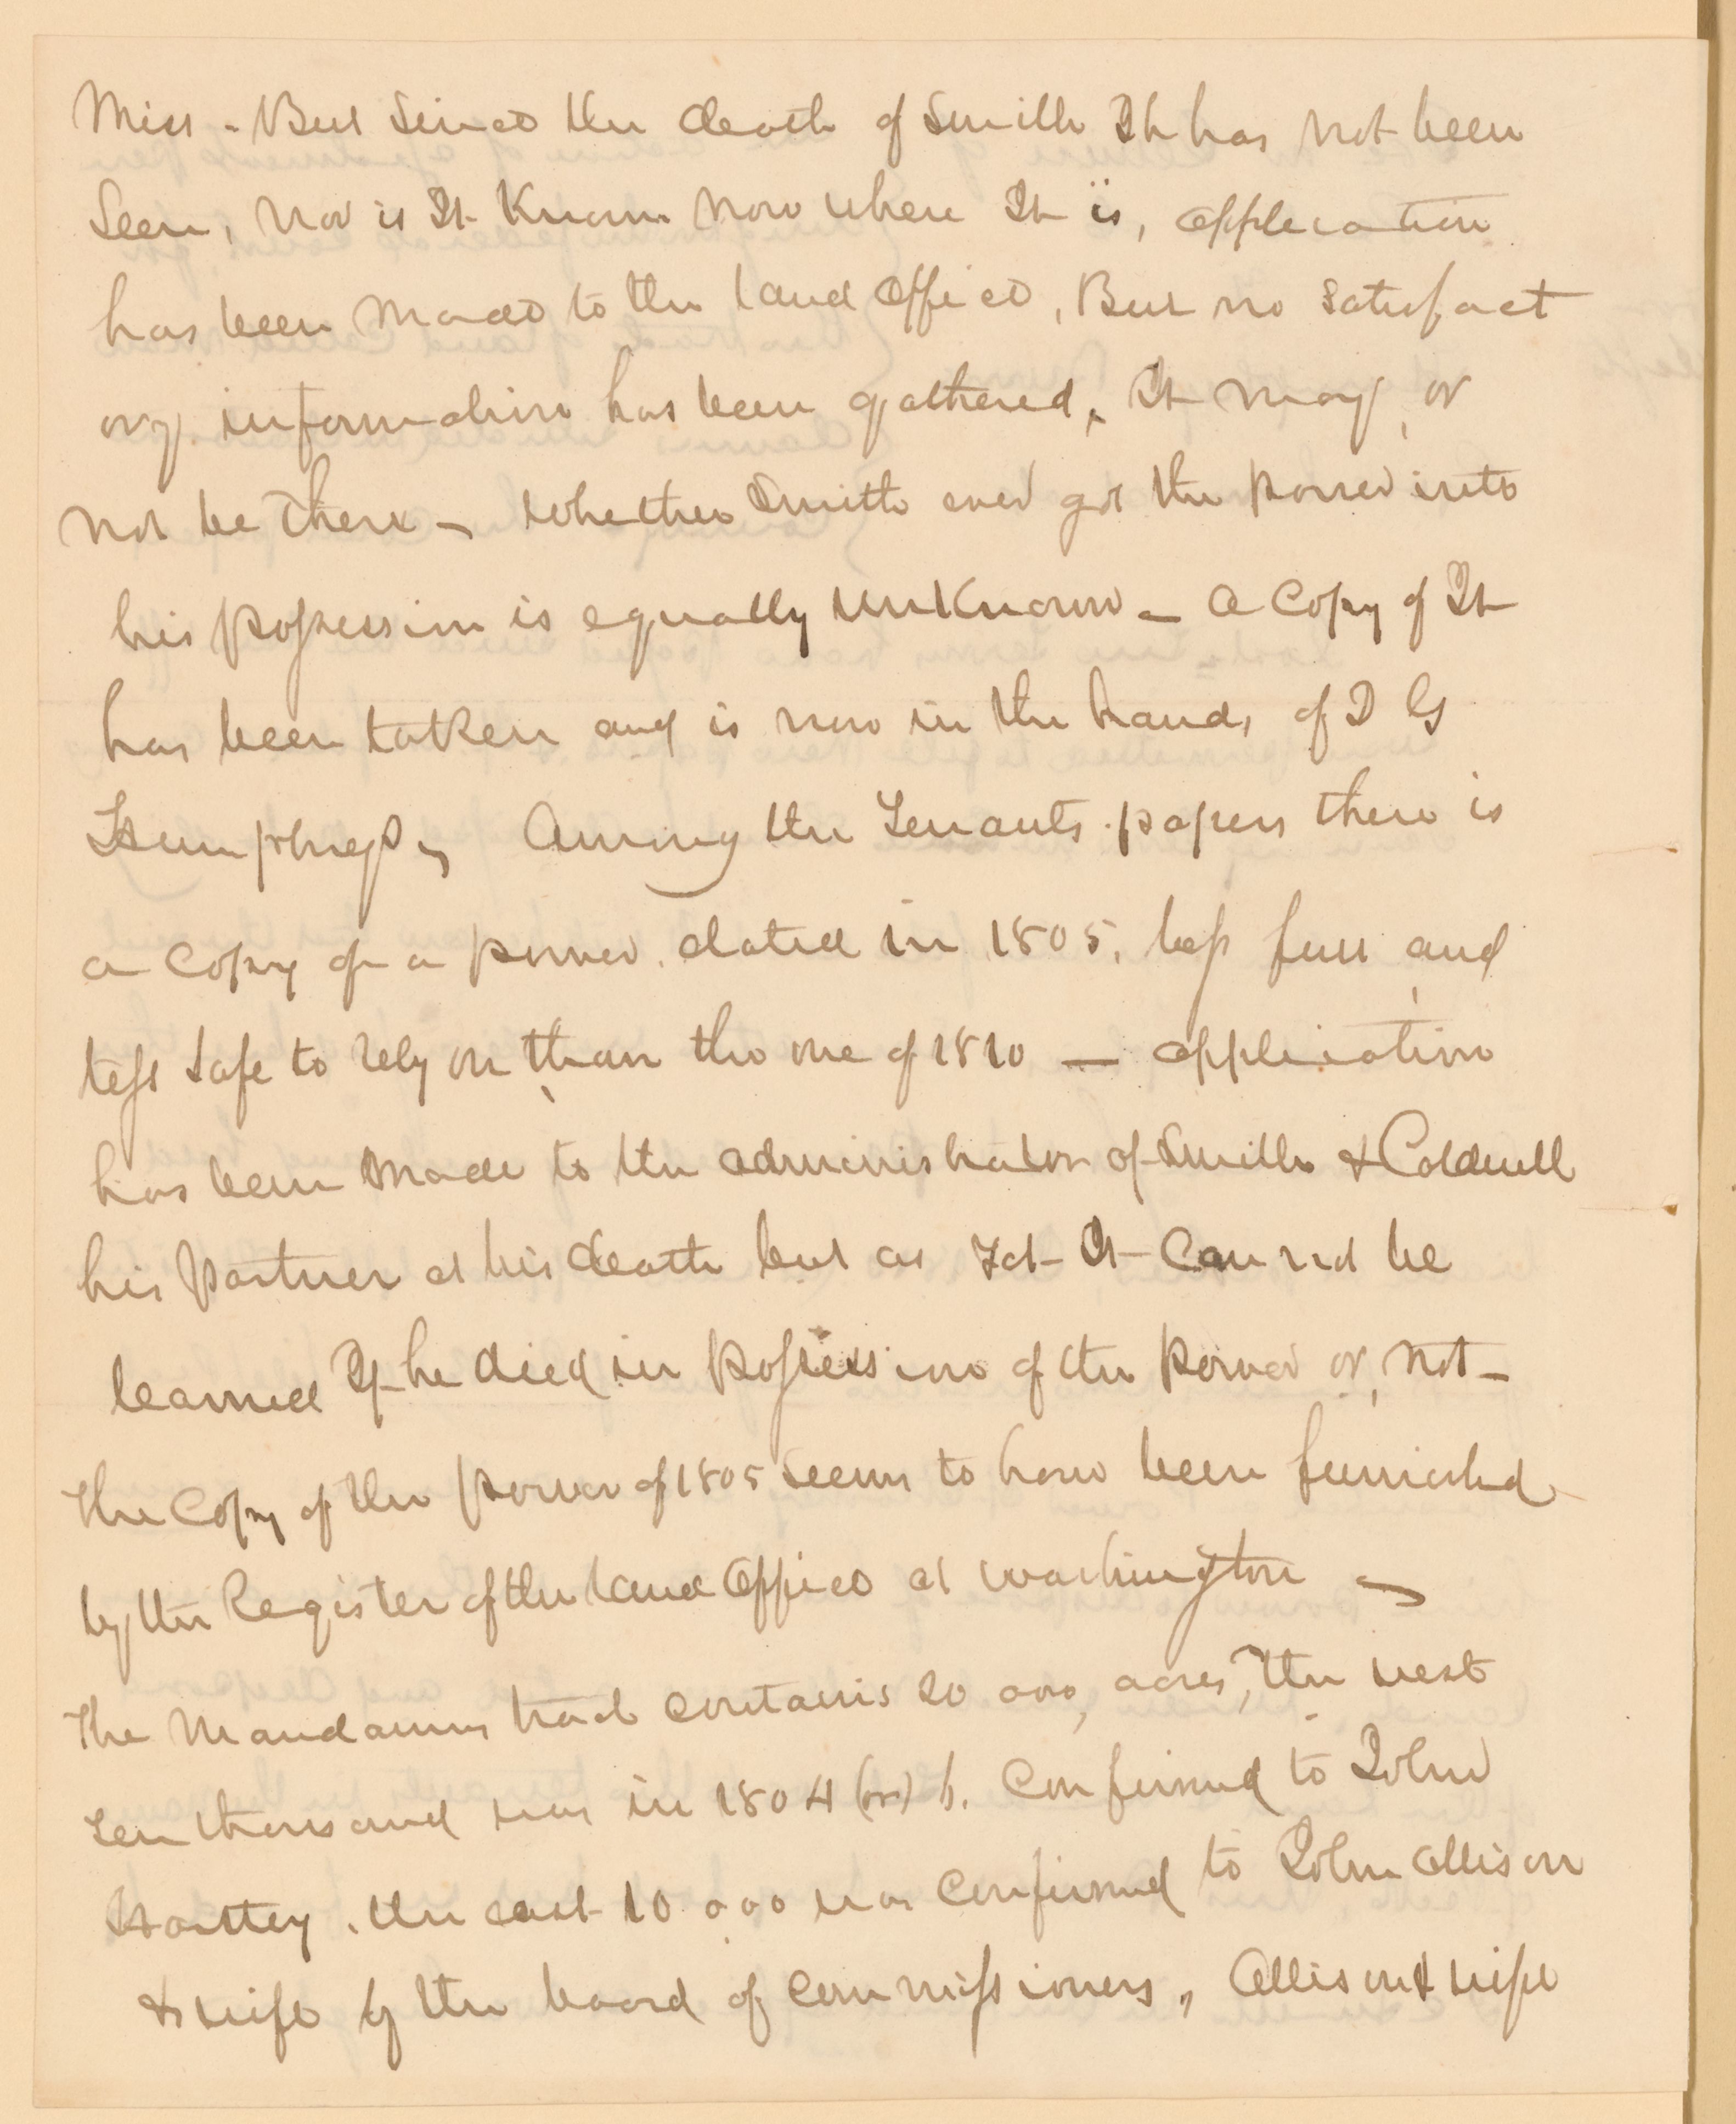 Miss - But Since the death of Smith It has not been
Seen, nor is It Known now where It is, application
has been made to the land office, But no satisfact
ory information has been gathered, It may, or
not be there - whether Smith ever got the power into
his possession is equally unknown - a copy of It
has been taken and is now in the hands of D G
Humphreys - Among the Tenants papers there is
a copy of a power dated in 1805, less full and
less safe to rely on than the one of 1810 — application
has been made to the administrator of Smith & Coldwell
his partner at his death but as yet It can not be
learned If he died in possession of the power or, not -
The copy of the power of 1805 seems to have been furnished
by the Register of the land office at Washington -
The Mandamus tract contains 20 000, acres, the west
Ten thousand was in 1804 (or) 6. confirmed to John
, the east 10 000 was confirmed to John Allison
& wife by the board of commissioners, Allison & wife